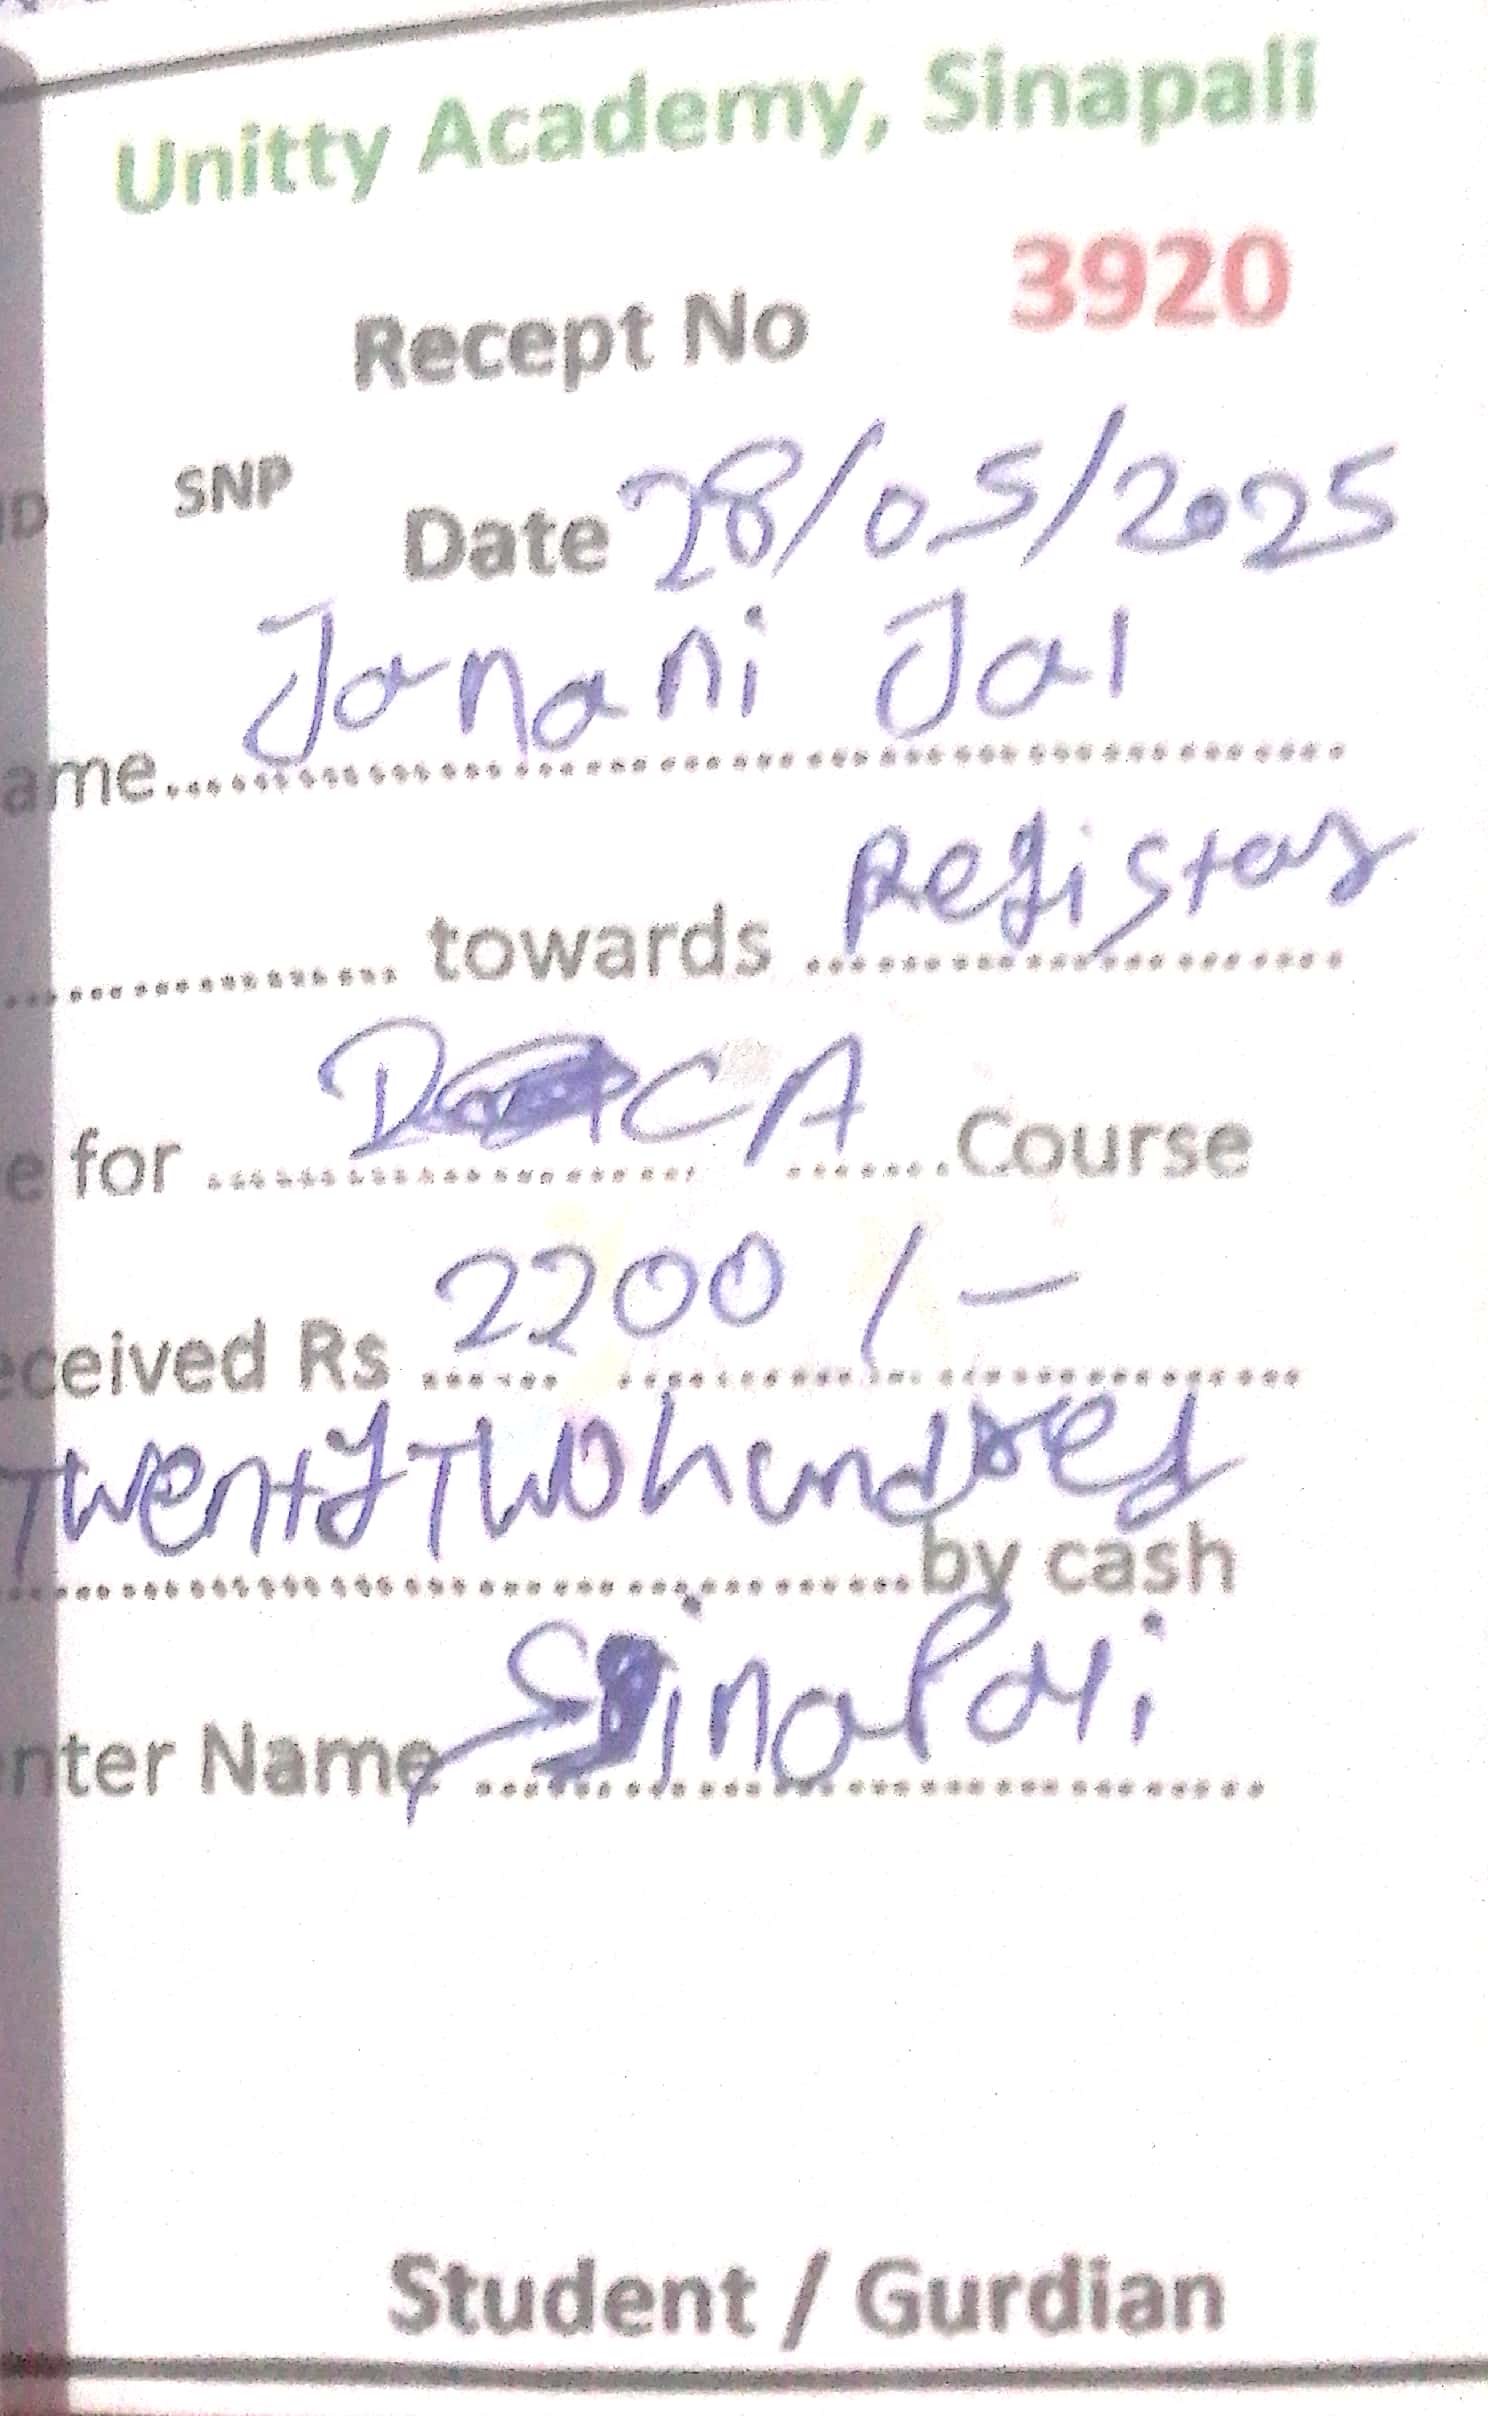 Unitty Academy, Sinapali
Recept No 3920
ID SNP Date 28/05/2025
ame.......... Janani Jal
.......... towards .......... Registar
e for .......... DCA ..........Course
eceived Rs .......... 2200 /-
Twenty Two hundred
..........by cash
enter Name .......... Sinapali
Student / Gurdian